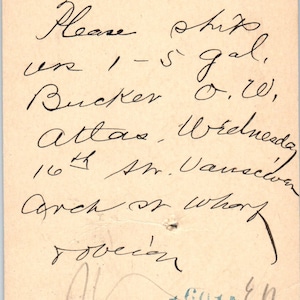 Please ship
us 1-5 gal.
Bucker O.W.
Atlas. Wednesday
16th Str. Vansciver
Arch st Wharf